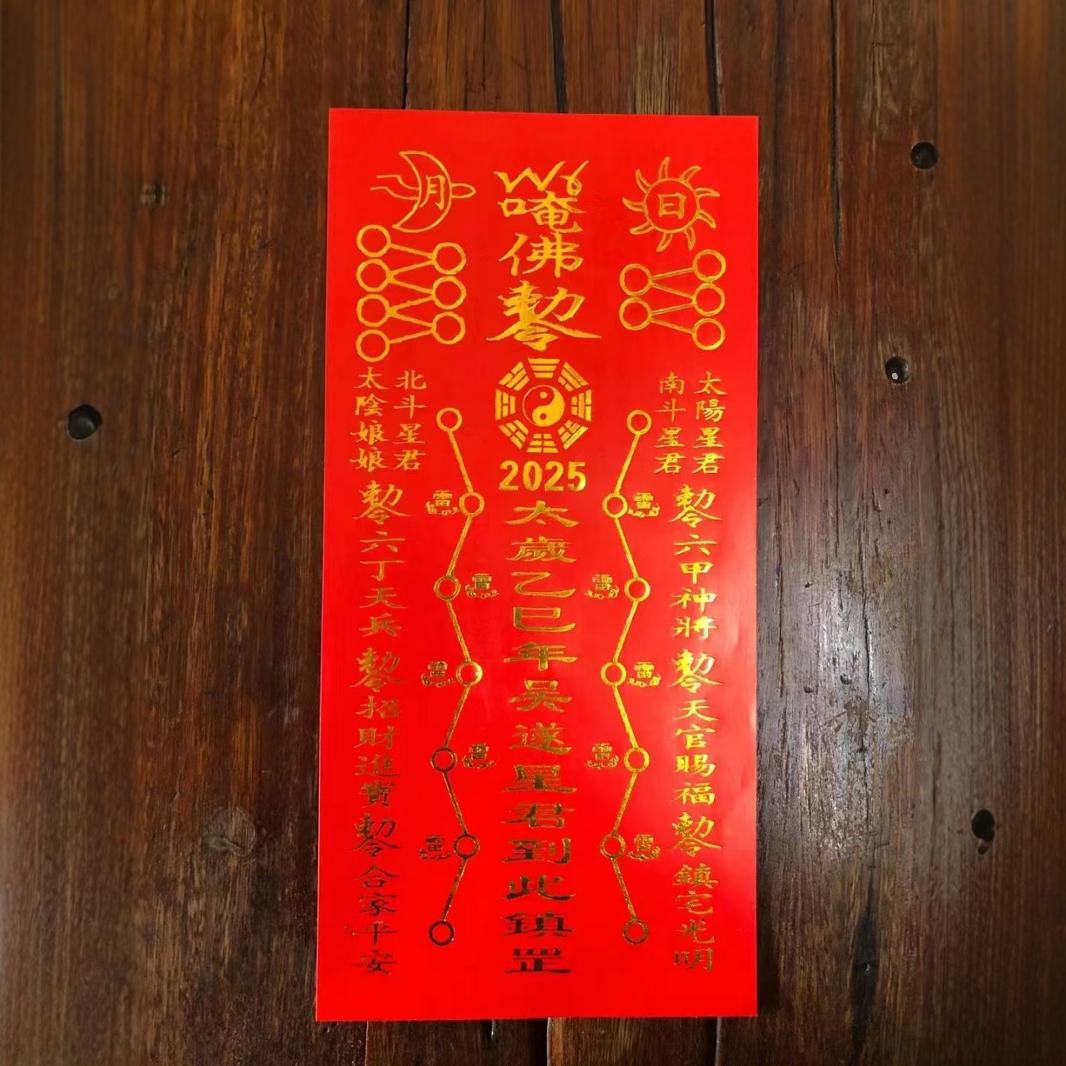 日
太陽星君
南斗星君
勅令六甲神將勅令天官賜福勅令鎮宅光明
唵佛勅令
2025
太歲乙巳年吳遂星君到此鎮罡
月
北斗星君
太陰娘娘
勅令六丁天兵勅令招財進寶勅令合家平安